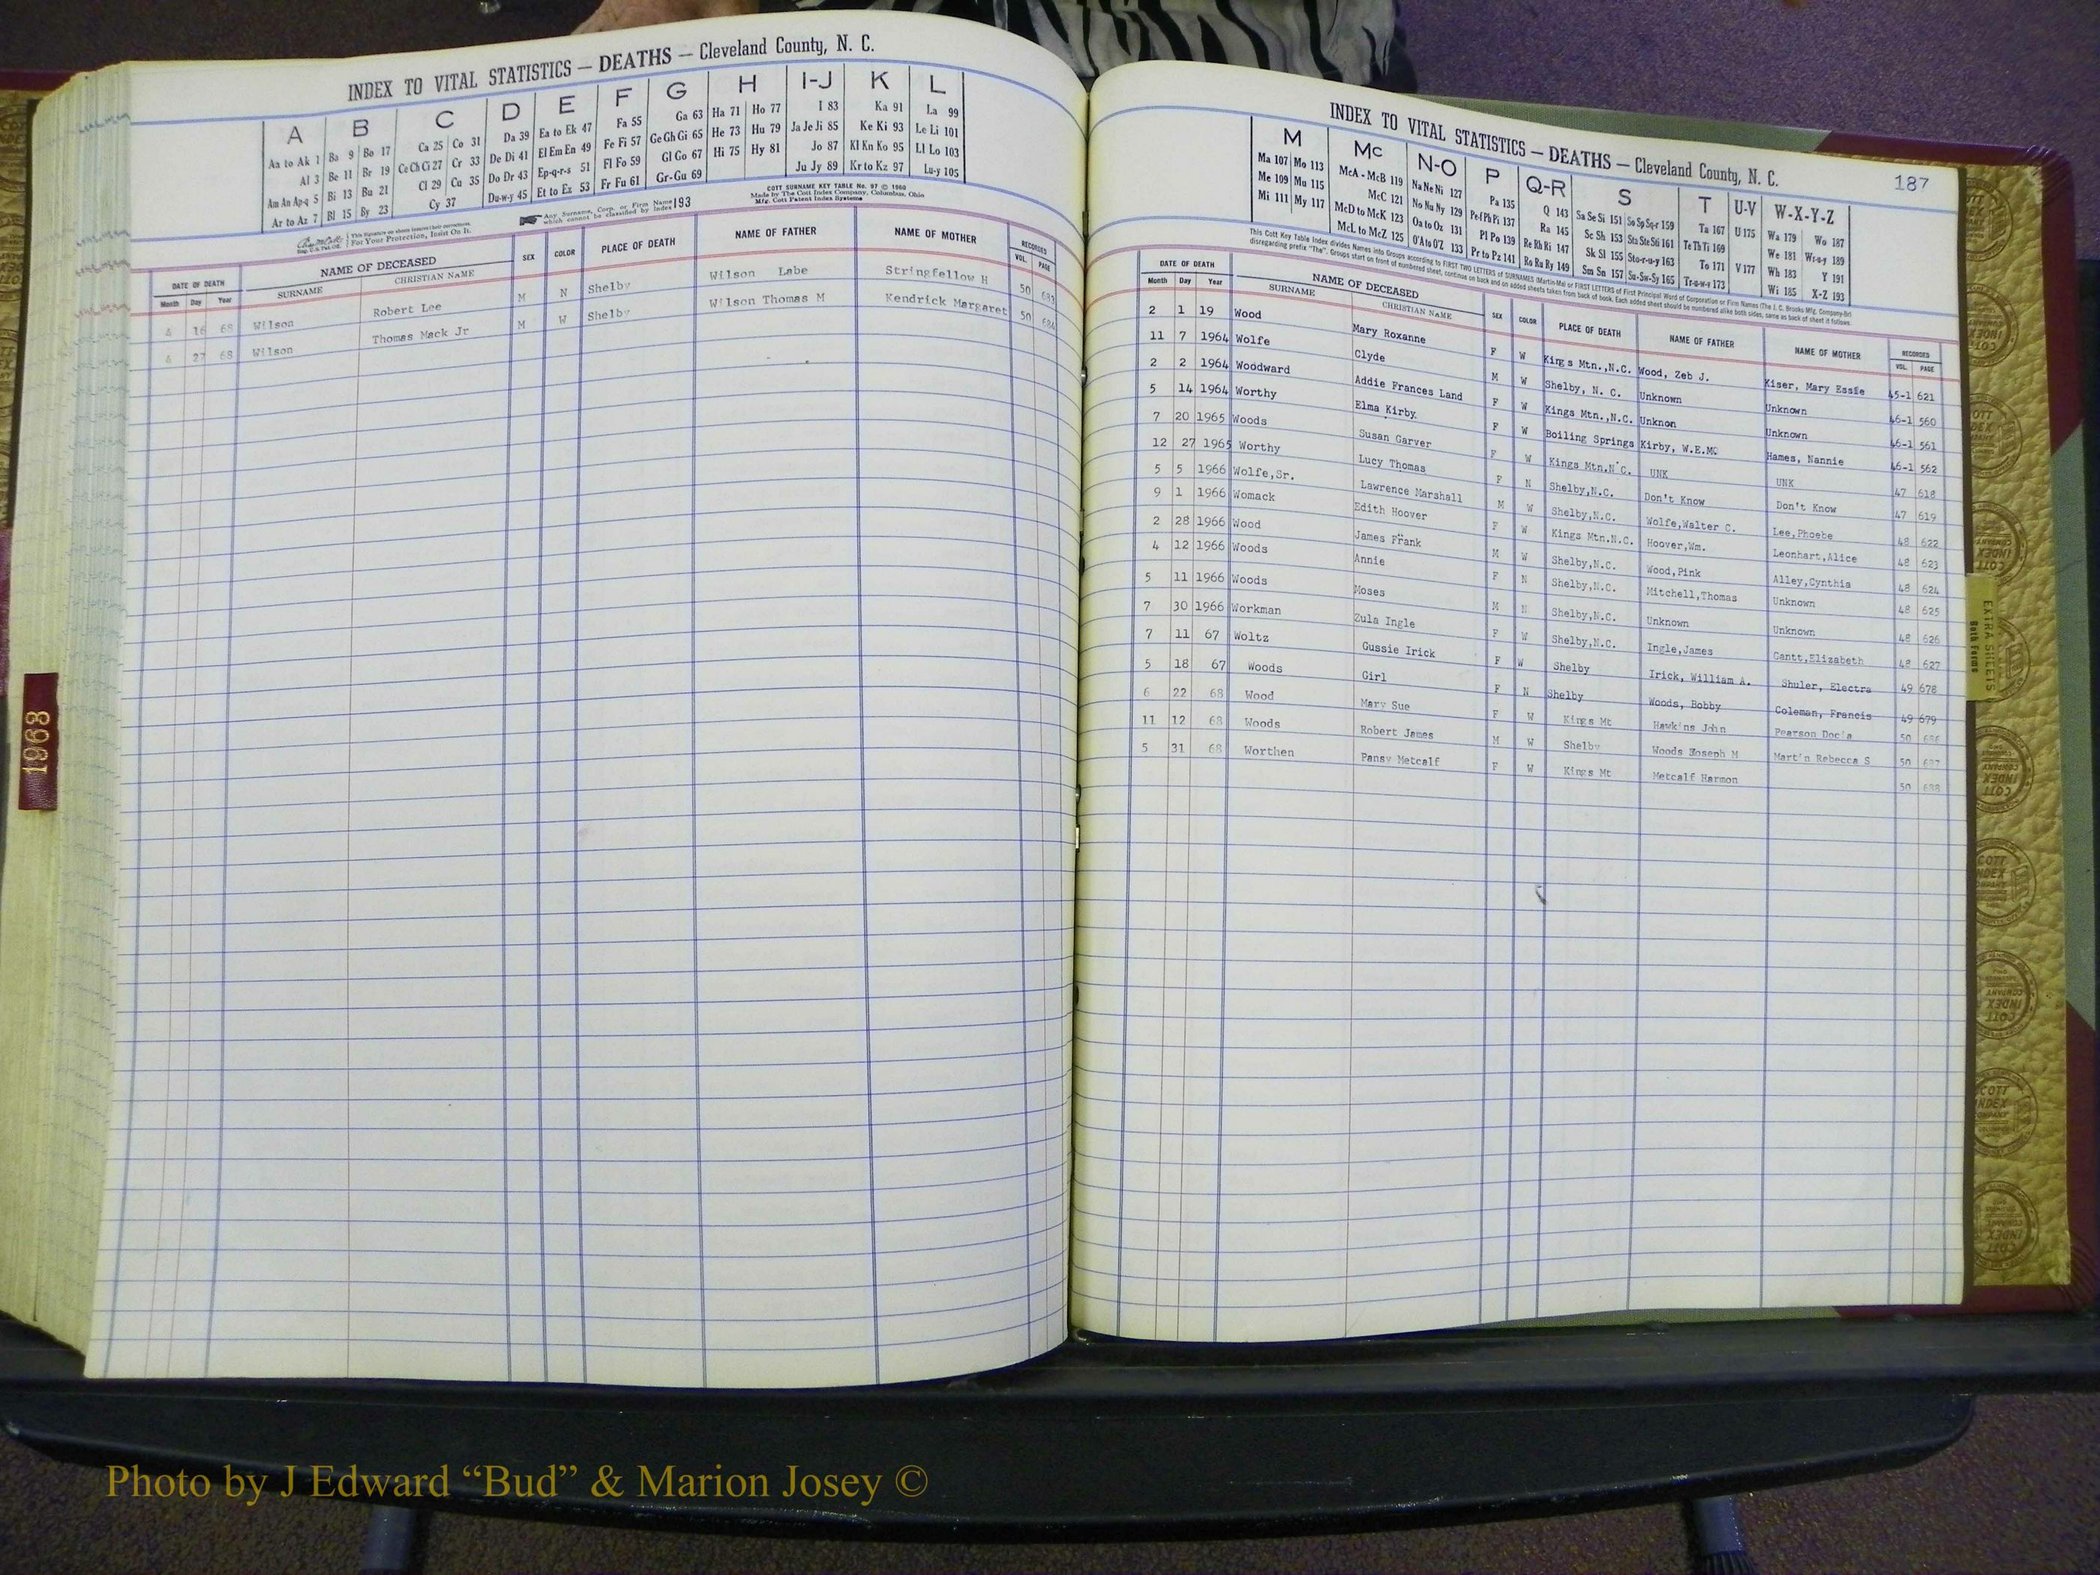 INDEX TO VITAL STATISTICS — DEATHS — Cleveland County, N. C.
A B C D E F G H I-J K L
Aa to Ak 1 Ba 9 Bo 17 Ca 25 Co 31 Da 39 Ea to Ek 47 Fa 55 Ga 63 Ha 71 Ho 77 I 83 Ka 91 La 99
Al 3 Be 11 Br 19 Ce Ch Ci 27 Cr 33 De Di 41 El Em En 49 Fe Fi 57 Ge Gh Gi 65 He 73 Hu 79 Ja Je Ji 85 Ke Ki 93 Le Li 101
Am An Ap-q 5 Bi 13 Bu 21 Cl 29 Cu 35 Do Dr 43 Ep-q-r-s 51 Fl Fo 59 Gl Go 67 Hi 75 Hy 81 Jo 87 Kl Kn Ko 95 Ll Lo 103
Ar to Az 7 Bl 15 By 23 Cy 37 Du-w-y 45 Et to Ez 53 Fr Fu 61 Gr-Gu 69 Ju Jy 89 Kr to Kz 97 Lu-y 105
COTT SURNAME KEY TABLE No. 97 © 1960
Made by The Cott Index Company, Columbus, Ohio
Mfg. Cott Patent Index Systems
For Your Protection, Insist On It.
Any Surname, Corp. or Firm Name which cannot be classified by Index 193
DATE OF DEATH NAME OF DECEASED SEX COLOR PLACE OF DEATH NAME OF FATHER NAME OF MOTHER RECORDED
Month Day Year SURNAME CHRISTIAN NAME VOL. PAGE
4 16 68 Wilson Robert Lee M N Shelby Wilson Labe Stringfellow H 50 683
4 27 68 Wilson Thomas Mack Jr M W Shelby Wilson Thomas M Kendrick Margaret 50 684
1968
INDEX TO VITAL STATISTICS — DEATHS — Cleveland County, N. C.
187
M Mc N-O P Q-R S T U-V W-X-Y-Z
Ma 107 Mo 113 McA - McB 119 Na Ne Ni 127 Pa 135 Q 143 Sa Se Si 151 So Sp Sq-r 159 Ta 167 U 175 Wa 179 Wo 187
Me 109 Mu 115 McC 121 No Nu Ny 129 Pe-f Ph Pi 137 Ra 145 Sc Sh 153 Sta Ste Sti 161 Te Th Ti 169 We 181 Wr-u-y 189
Mi 111 My 117 McD to McK 123 Oa to Oz 131 Pl Po 139 Re Rh Ri 147 Sk Sl 155 Sto-r-u-y 163 To 171 V 177 Wh 183 Y 191
McL to McZ 125 O'A to O'Z 133 Pr to Pz 141 Ro Ru Ry 149 Sm Sn 157 Su-Sw-Sy 165 Tr-u-w-y 173 Wi 185 X-Z 193
This Cott Key Table Index divides Names into Groups according to FIRST TWO LETTERS of SURNAMES (Martin-Ma) or FIRST LETTERS of First Principal Word of Corporation or Firm Names (The J. C. Brooks Mfg. Company-Br)
disregarding prefix "The". Groups start on front of numbered sheet, continue on back and on added sheets taken from back of book. Each added sheet should be numbered alike both sides, same as back of sheet it follows.
DATE OF DEATH NAME OF DECEASED SEX COLOR PLACE OF DEATH NAME OF FATHER NAME OF MOTHER RECORDED
Month Day Year SURNAME CHRISTIAN NAME VOL. PAGE
2 1 19 Wood Mary Roxanne F W Kings Mtn.,N.C. Wood, Zeb J. Kiser, Mary Essie 45-1 621
11 7 1964 Wolfe Clyde M W Shelby, N. C. Unknown Unknown 46-1 560
2 2 1964 Woodward Addie Frances Land F W Kings Mtn.,N.C. Unknon Unknown 46-1 561
5 14 1964 Worthy Elma Kirby F W Boiling Springs Kirby, W.E.MC Hames, Nannie 46-1 562
7 20 1965 Woods Susan Garver F W Kings Mtn.N.C. UNK UNK 47 618
12 27 1965 Worthy Lucy Thomas F N Shelby,N.C. Don't Know Don't Know 47 619
5 5 1966 Wolfe,Sr. Lawrence Marshall M W Shelby,N.C. Wolfe,Walter C. Lee,Phoebe 48 622
9 1 1966 Womack Edith Hoover F W Kings Mtn.N.C. Hoover,Wm. Leonhart,Alice 48 623
2 28 1966 Wood James Frank M W Shelby,N.C. Wood,Pink Alley,Cynthia 48 624
4 12 1966 Woods Annie F N Shelby,N.C. Mitchell,Thomas Unknown 48 625
5 11 1966 Woods Moses M N Shelby,N.C. Unknown Unknown 48 626
7 30 1966 Workman Zula Ingle F W Shelby,N.C. Ingle,James Cantt,Elizabeth 48 627
7 11 67 Woltz Gussie Irick F W Shelby Irick, William A. Shuler, Electra 49 678
5 18 67 Woods Girl F N Shelby Woods, Bobby Coleman, Francis 49 679
6 22 68 Wood Mary Sue F W Kings Mt Hawkins John Pearson Docia 50 686
11 12 68 Woods Robert James M W Shelby Woods Joseph M Martin Rebecca S 50 687
5 31 68 Worthen Pansy Metcalf F W Kings Mt Metcalf Harmon 50 688
EXTRA SHEETS
Both Forms
Photo by J Edward “Bud” & Marion Josey ©